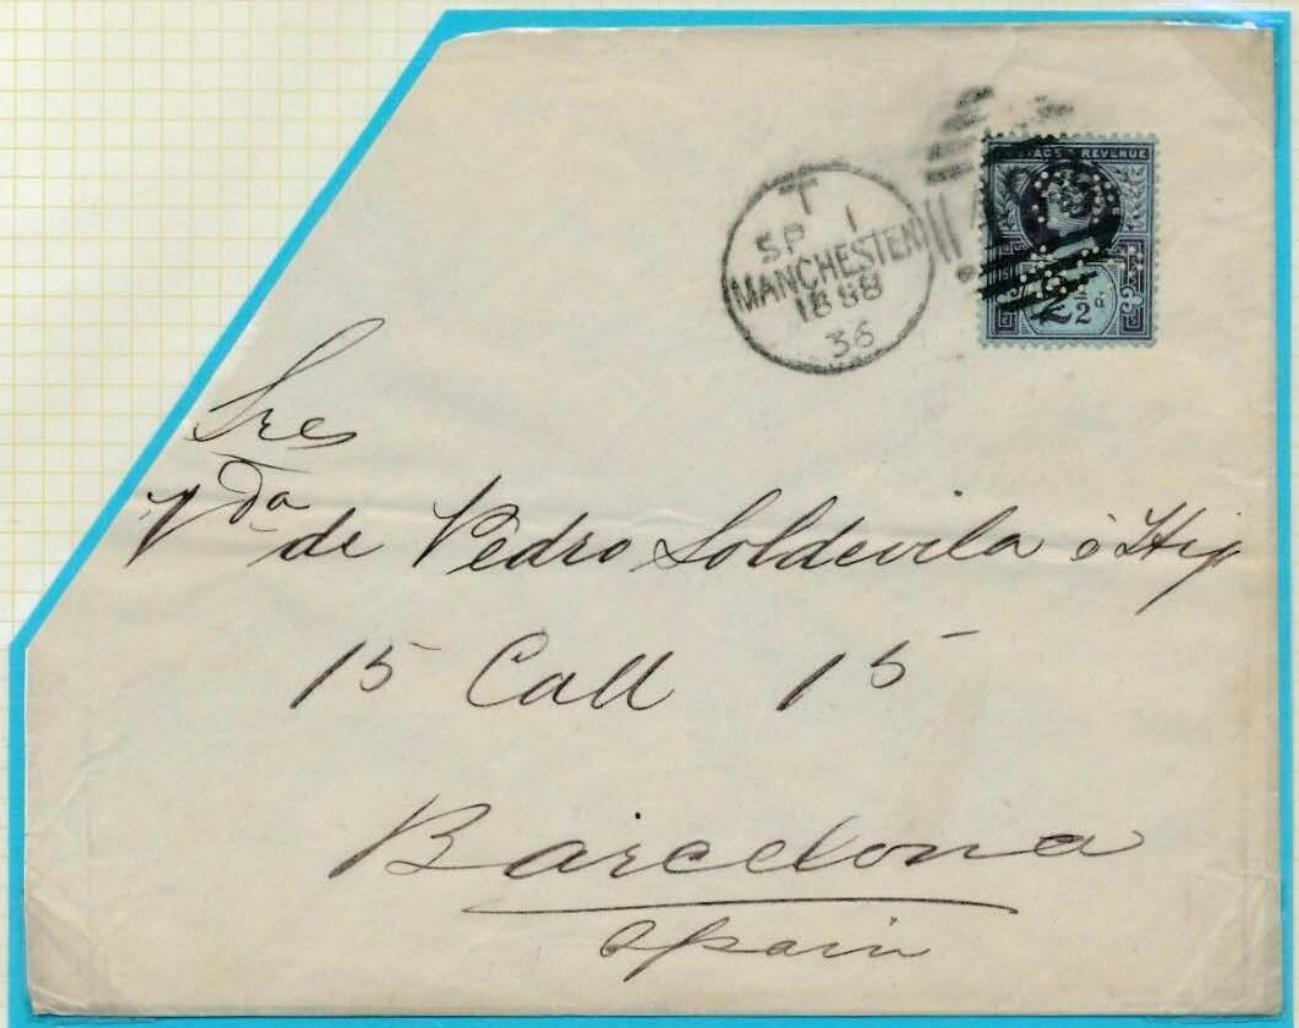 T
SP 1
MANCHESTER
1888
36
REVENUE
2½d.
Sres
Vda de Pedro Soldevila é Hijo
15 Call 15
Barcelona
Spain